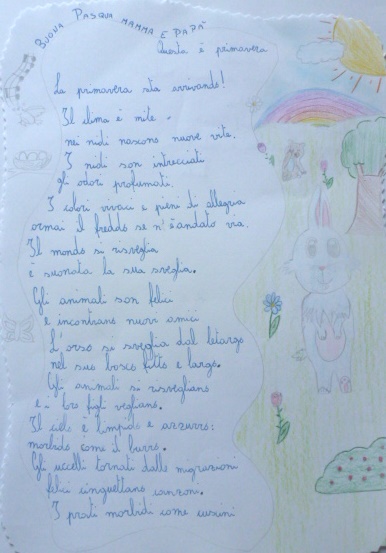 BUONA PASQUA MAMMA E PAPÀ
Questa è primavera
La primavera sta arrivando!
Il clima è mite
nei nidi nascono nuove vite.
I nidi son intrecciati
gli odori profumati.
I colori vivaci e pieni di allegria
ormai il freddo se n'è andato via.
Il mondo si risveglia
è suonata la sua sveglia.
Gli animali son felici
e incontrano nuovi amici
L'orso si sveglia dal letargo
nel suo bosco fitto e largo.
Gli animali si risvegliano
e i loro figli vegliano.
Il cielo è limpido e azzurro:
morbido come il burro.
Gli uccelli tornati dalle migrazioni
felici cinguettano canzoni.
I prati morbidi come cuscini